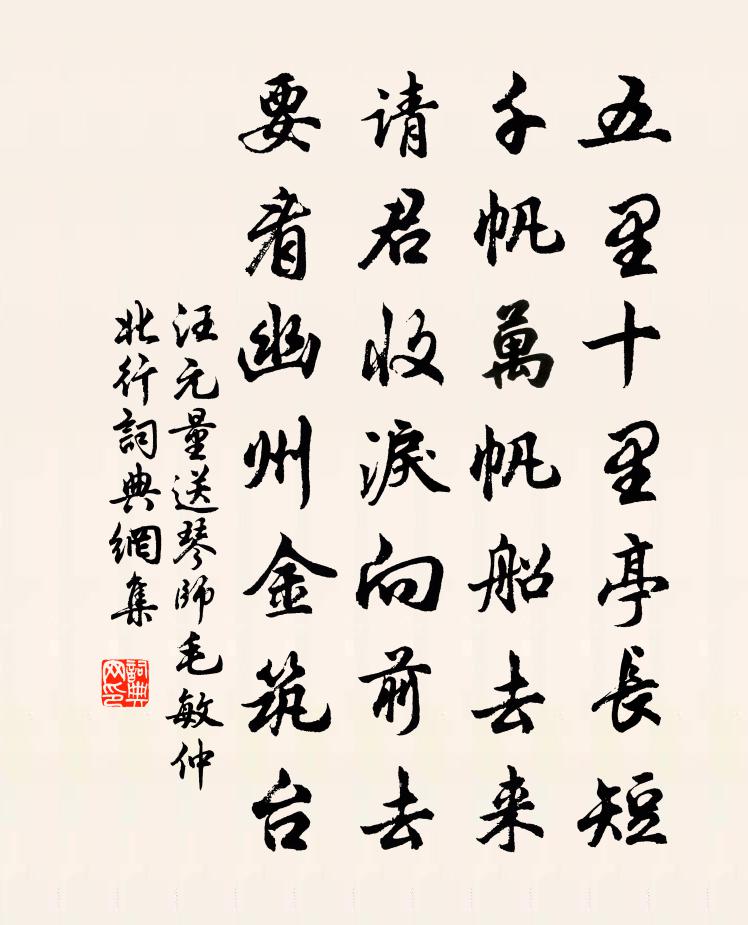 五里十里亭長短
千帆萬帆船去来
请君收淚向前去
要看幽州金筑台
汪元量送琴師毛敏仲
北行詞典網集
詞典网印